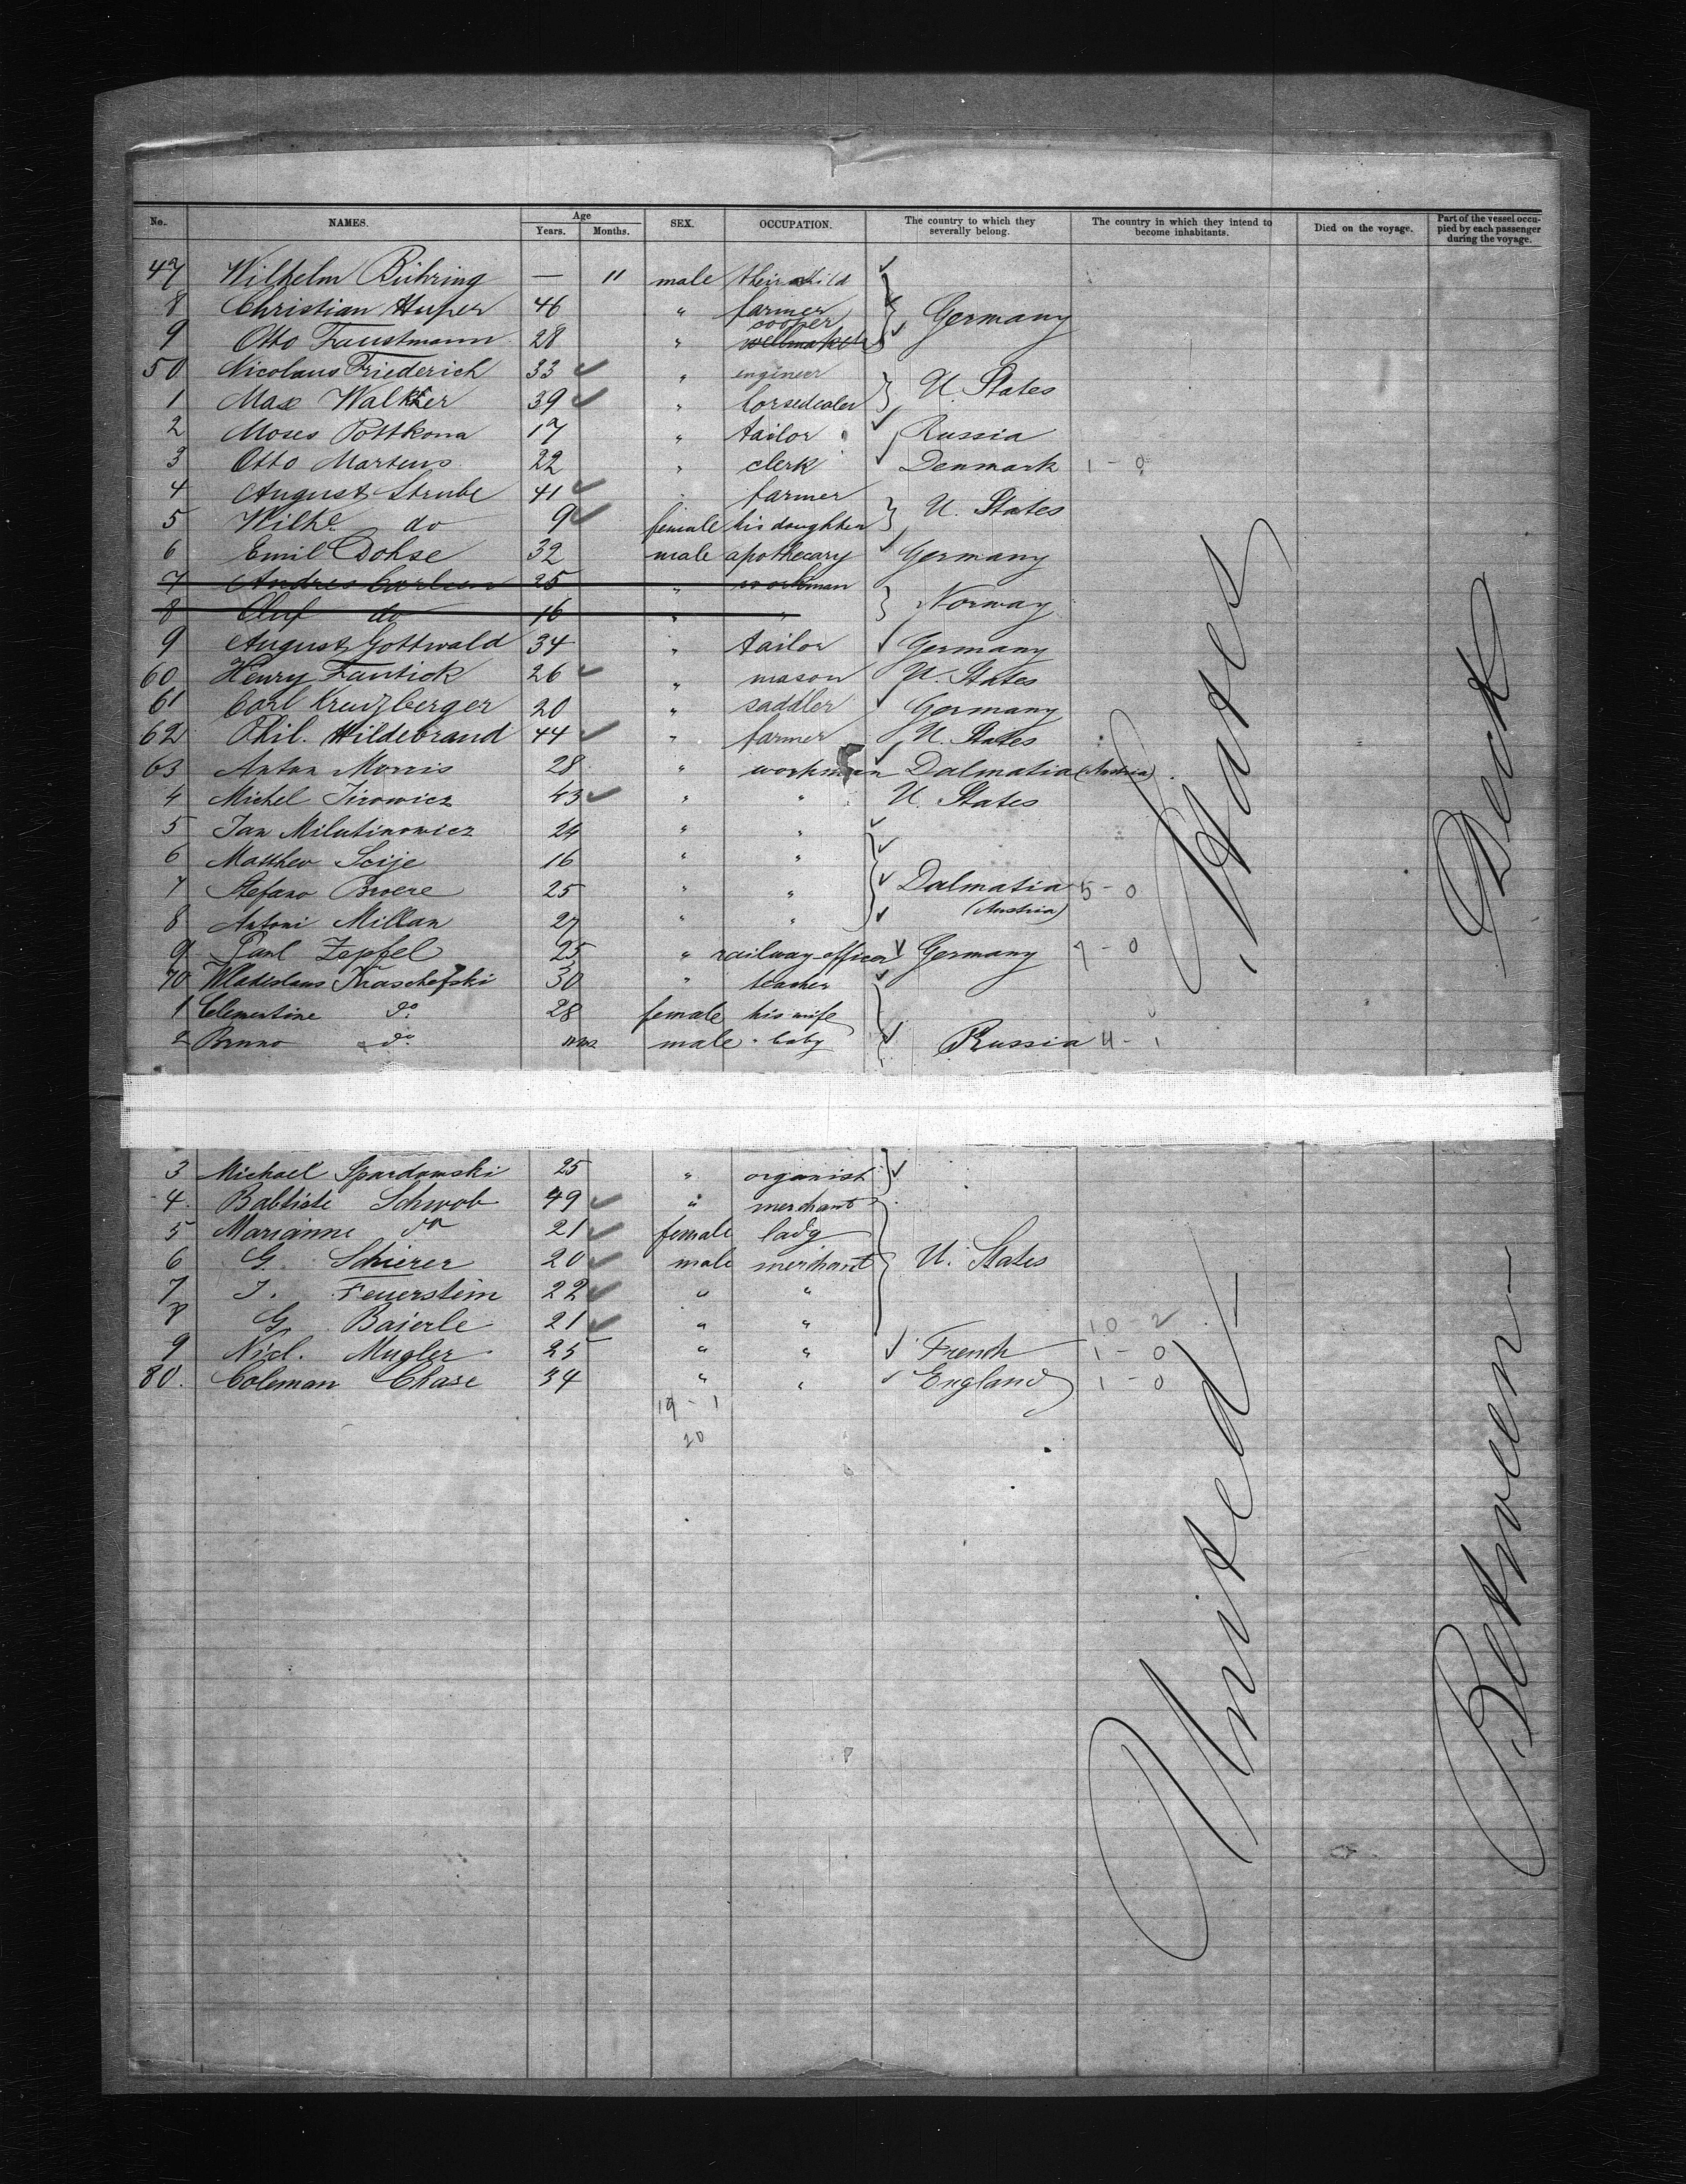 No. NAMES. Age Years. Months. SEX. OCCUPATION. The country to which they severally belong. The country in which they intend to become inhabitants. Died on the voyage. Part of the vessel occupied by each passenger during the voyage.
47 Wilhelm Bühring — 11 male their child
8 Christian Huper 46 " farmer Germany
cooper
9 Otto Faustmann 28 " wellmaker
50 Nicolaus Friederich 33 " engineer
1 Max Walker 39 " horsedealer U. States
2 Moses Pottkona 17 " tailor Russia
3 Otto Martens 22 " clerk Denmark 1 - 0
4 August Strube 41 " farmer
5 Wilhe do 9 female his daughter U. States
6 Emil Dohse 32 male apothecary Germany
7 Andres Carlsen 25 " workman
8 Oluf do 16 " " Norway
9 August Gottwald 34 " tailor Germany
60 Henry Fautick 26 " mason U. States
61 Carl Kreuzberger 20 " saddler Germany
62 Phil. Hildebrand 44 " farmer U. States
63 Anton Morris 28 " workman Dalmatia (Austria)
4 Michel Jirowicz 43 " " U. States
5 Jan Milutinowicz 24 " "
6 Matthew Scije 16 " "
7 Stefano Brvere 25 " " Dalmatia 5 - 0
8 Antoni Millan 27 " " (Austria)
9 Paul Zepfel 25 " railway-officer Germany 7 - 0
70 Wladislaus Kraschefski 30 " teacher
1 Clementine do 28 female his wife
2 Bruno do male " baby Russia 4 - 1
3 Michael Spardowski 25 " organist
4 Babtiste Schwob 49 " merchant
5 Marianne do 21 female lady
6 G. Schierer 20 male merchant U. States
7 J. Feuerstein 22 " "
8 G. Baierle 21 " " 10 - 2
9 Nicl. Mugler 25 " " French 1 - 0
80. Coleman Chase 34 " " England 1 - 0
19 - 1
20
United States
Between Deck